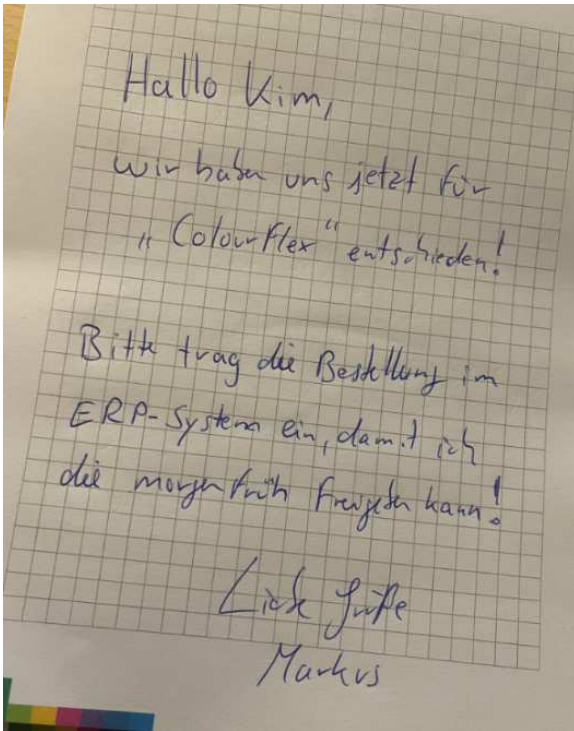 Hallo Kim,
wir haben uns jetzt für
„Colourflex“ entschieden!
Bitte trag die Bestellung im
ERP-System ein, damit ich
die morgen früh freigeben kann!
Liebe Grüße
Markus